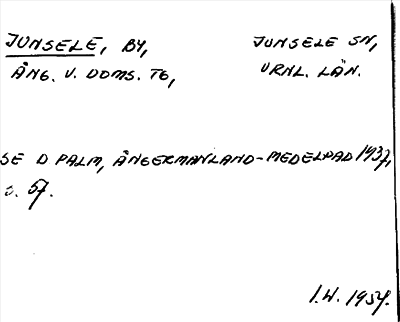 JUNSELE, BY, JUNSELE SN,
ÅNG. V. DOMS. TG, VRNL. LÄN.
SE D PALM, ÅNGERMANLAND-MEDELPAD 1937,
s. 57.
I.W. 1954.